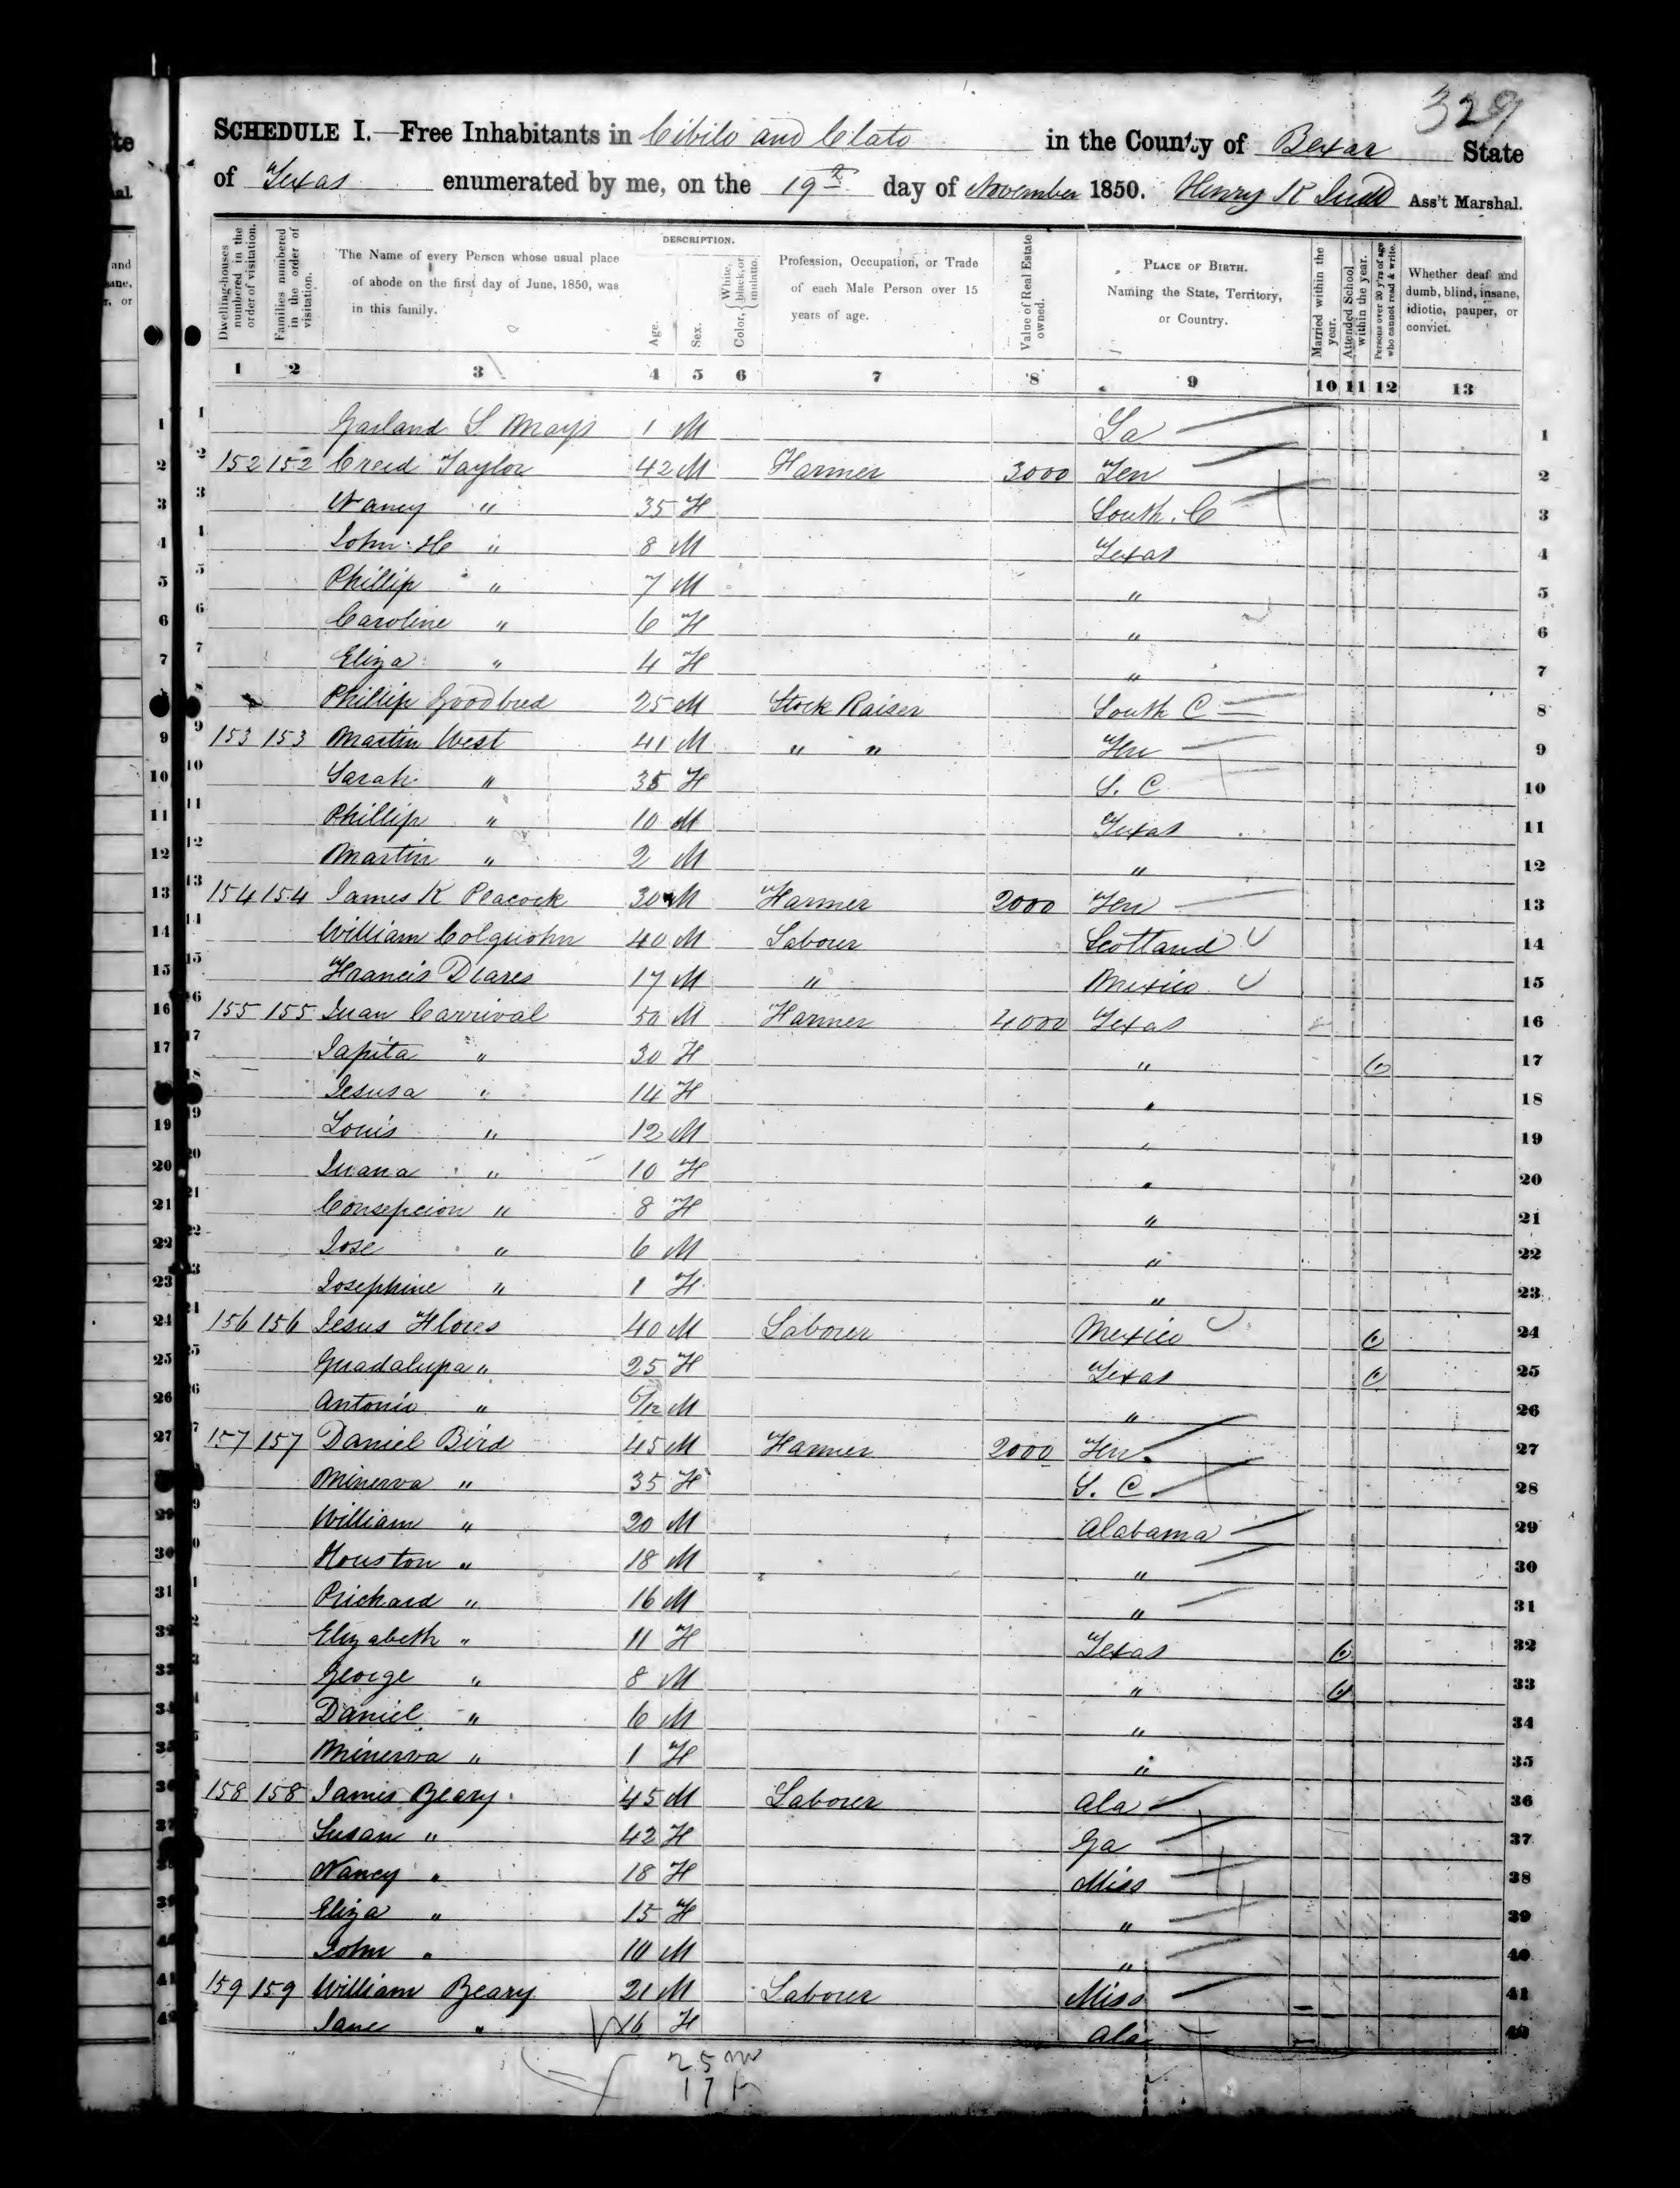 329
SCHEDULE I.—Free Inhabitants in Cibilo and Clato in the County of Bexar State
of Texas enumerated by me, on the 19th day of November 1850. Henry K Judd Ass't Marshal.
Dwelling-houses numbered in the order of visitation.
Families numbered in the order of visitation.
The Name of every Person whose usual place of abode on the first day of June, 1850, was in this family.
DESCRIPTION.
Age.
Sex.
Color, White, black, or mulatto.
Profession, Occupation, or Trade of each Male Person over 15 years of age.
Value of Real Estate owned.
PLACE OF BIRTH. Naming the State, Territory, or Country.
Married within the year.
Attended School within the year.
Persons over 20 y'rs of age who cannot read & write.
Whether deaf and dumb, blind, insane, idiotic, pauper, or convict.
1 2 3 4 5 6 7 8 9 10 11 12 13
1 Garland S. Mays 1 M La 1
2 152 152 Creed Taylor 42 M Farmer 3000 Ten 2
3 Nancy " 35 F South. C 3
4 John H " 8 M Texas 4
5 Phillip " 7 M " 5
6 Caroline " 6 F " 6
7 Eliza " 4 F " 7
8 Phillip Goodbred 25 M Stock Raiser South C 8
9 153 153 Martin West 41 M " " Ten 9
10 Sarah " 35 F S. C 10
11 Phillip " 10 M Texas 11
12 Martin " 2 M " 12
13 154 154 James K Peacock 30 M Farmer 2000 Ten 13
14 William Colquohn 40 M Labour Scotland 14
15 Francis Diares 17 M " Mexico 15
16 155 155 Juan Carrival 50 M Farmer 4000 Texas 16
17 Japita " 30 F " 17
18 Jesusa " 14 F " 18
19 Louis " 12 M " 19
20 Juana " 10 F " 20
21 Consepcion " 8 F " 21
22 Jose " 6 M " 22
23 Josephine " 1 F " 23
24 156 156 Jesus Flores 40 M Laborer Mexico 24
25 Guadalupa " 25 F Texas 25
26 Antonio " 6/12 M " 26
27 157 157 Daniel Bird 45 M Farmer 2000 Ten. 27
28 Minerva " 35 F S. C 28
29 William " 20 M Alabama 29
30 Houston " 18 M " 30
31 Richard " 16 M " 31
32 Elizabeth " 11 F Texas 32
33 George " 8 M " 33
34 Daniel " 6 M " 34
35 Minerva " 1 F " 35
36 158 158 James Beary 45 M Laborer Ala 36
37 Susan " 42 F Ga 37
38 Nancy " 18 F Miss 38
39 Eliza " 15 F " 39
40 John " 10 M " 40
41 159 159 William Beary 21 M Laborer Miss 41
42 Jane " 16 F Ala 42
25 m
17 f